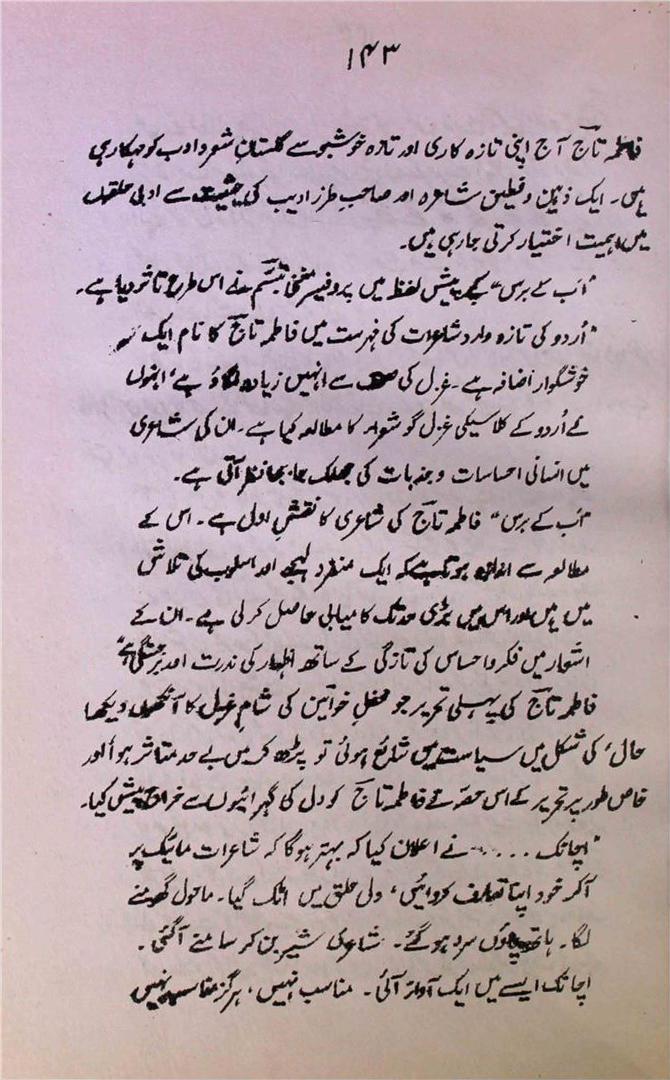 ۱۴۳
فاطمہ تاج آج اپنی تازہ کاری اور تازہ خوشبو سے گلستانِ شعر و ادب کو مہکا رہی
ہیں۔ ایک ذہین و فطین شاعرہ اور صاحبِ طرز ادیب کی حیثیت سے ادبی حلقوں
میں اہمیت اختیار کرتی جا رہی ہیں۔
"اَب کے برس" کے پیش لفظ میں پروفیسر مغنی تبسّم نے اس طرح تاثر دیا ہے۔
"اُردو کی تازہ وارد شاعرات کی فہرست میں فاطمہ تاج کا نام ایک
خوشگوار اضافہ ہے۔ غزل کی صنف سے انہیں زیادہ لگاؤ ہے، انہوں
نے اُردو کے کلاسیکی غزل گو شعراء کا مطالعہ کیا ہے۔ ان کی شاعری
میں انسانی احساسات و جذبات کی جھلک جا بجا نظر آتی ہے۔
"اَب کے برس" فاطمہ تاج کی شاعری کا نقشِ اولی ہے۔ اس کے
مطالعہ سے اندازہ ہوتا ہے کہ ایک منفرد لہجے اور اسلوب کی تلاش
میں ہیں اور اس میں بڑی حد تک کامیابی حاصل کر لی ہے۔ ان کے
اشعار میں فکر و احساس کی تازگی کے ساتھ اظہار کی ندرت اور برجستگی ہے"
فاطمہ تاج کی پہلی تحریر جو محفلِ خواتین کی شامِ غزل کا آنکھوں دیکھا
حال، کی شکل میں سیاست میں شائع ہوئی تو پڑھ کر میں بے حد متاثر ہوا اور
خاص طور پر تحریر کے اس حصّہ نے فاطمہ تاج کو دل کی گہرائیوں سے خراج پیش کیا۔
"اچانک ...... نے اعلان کیا کہ بہتر ہوگا کہ شاعرات مائیک پر
آکر خود اپنا تعارف کروائیں، دل حلق میں اٹک گیا۔ ماحول گھومنے
لگا۔ ہاتھ پاؤں سرد ہو گئے۔ شاعری شیر بن کر سامنے آگئی۔
اچانک ایسے میں ایک آواز آئی۔ مناسب نہیں، ہرگز مناسب نہیں